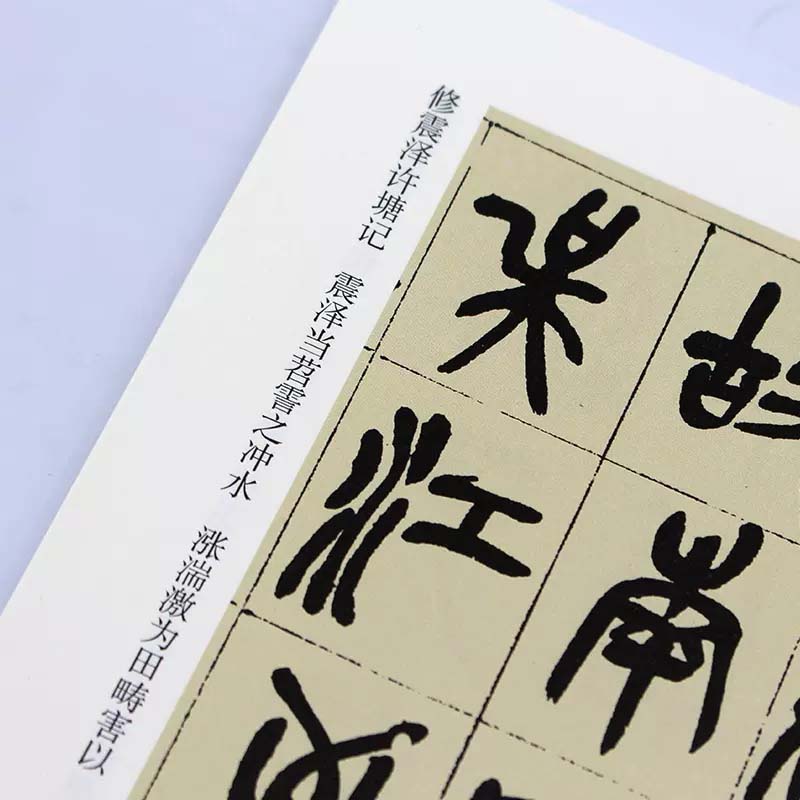 修震泽许塘记 震泽当苕霅之冲水 涨湍激为田畴害以
故南
江